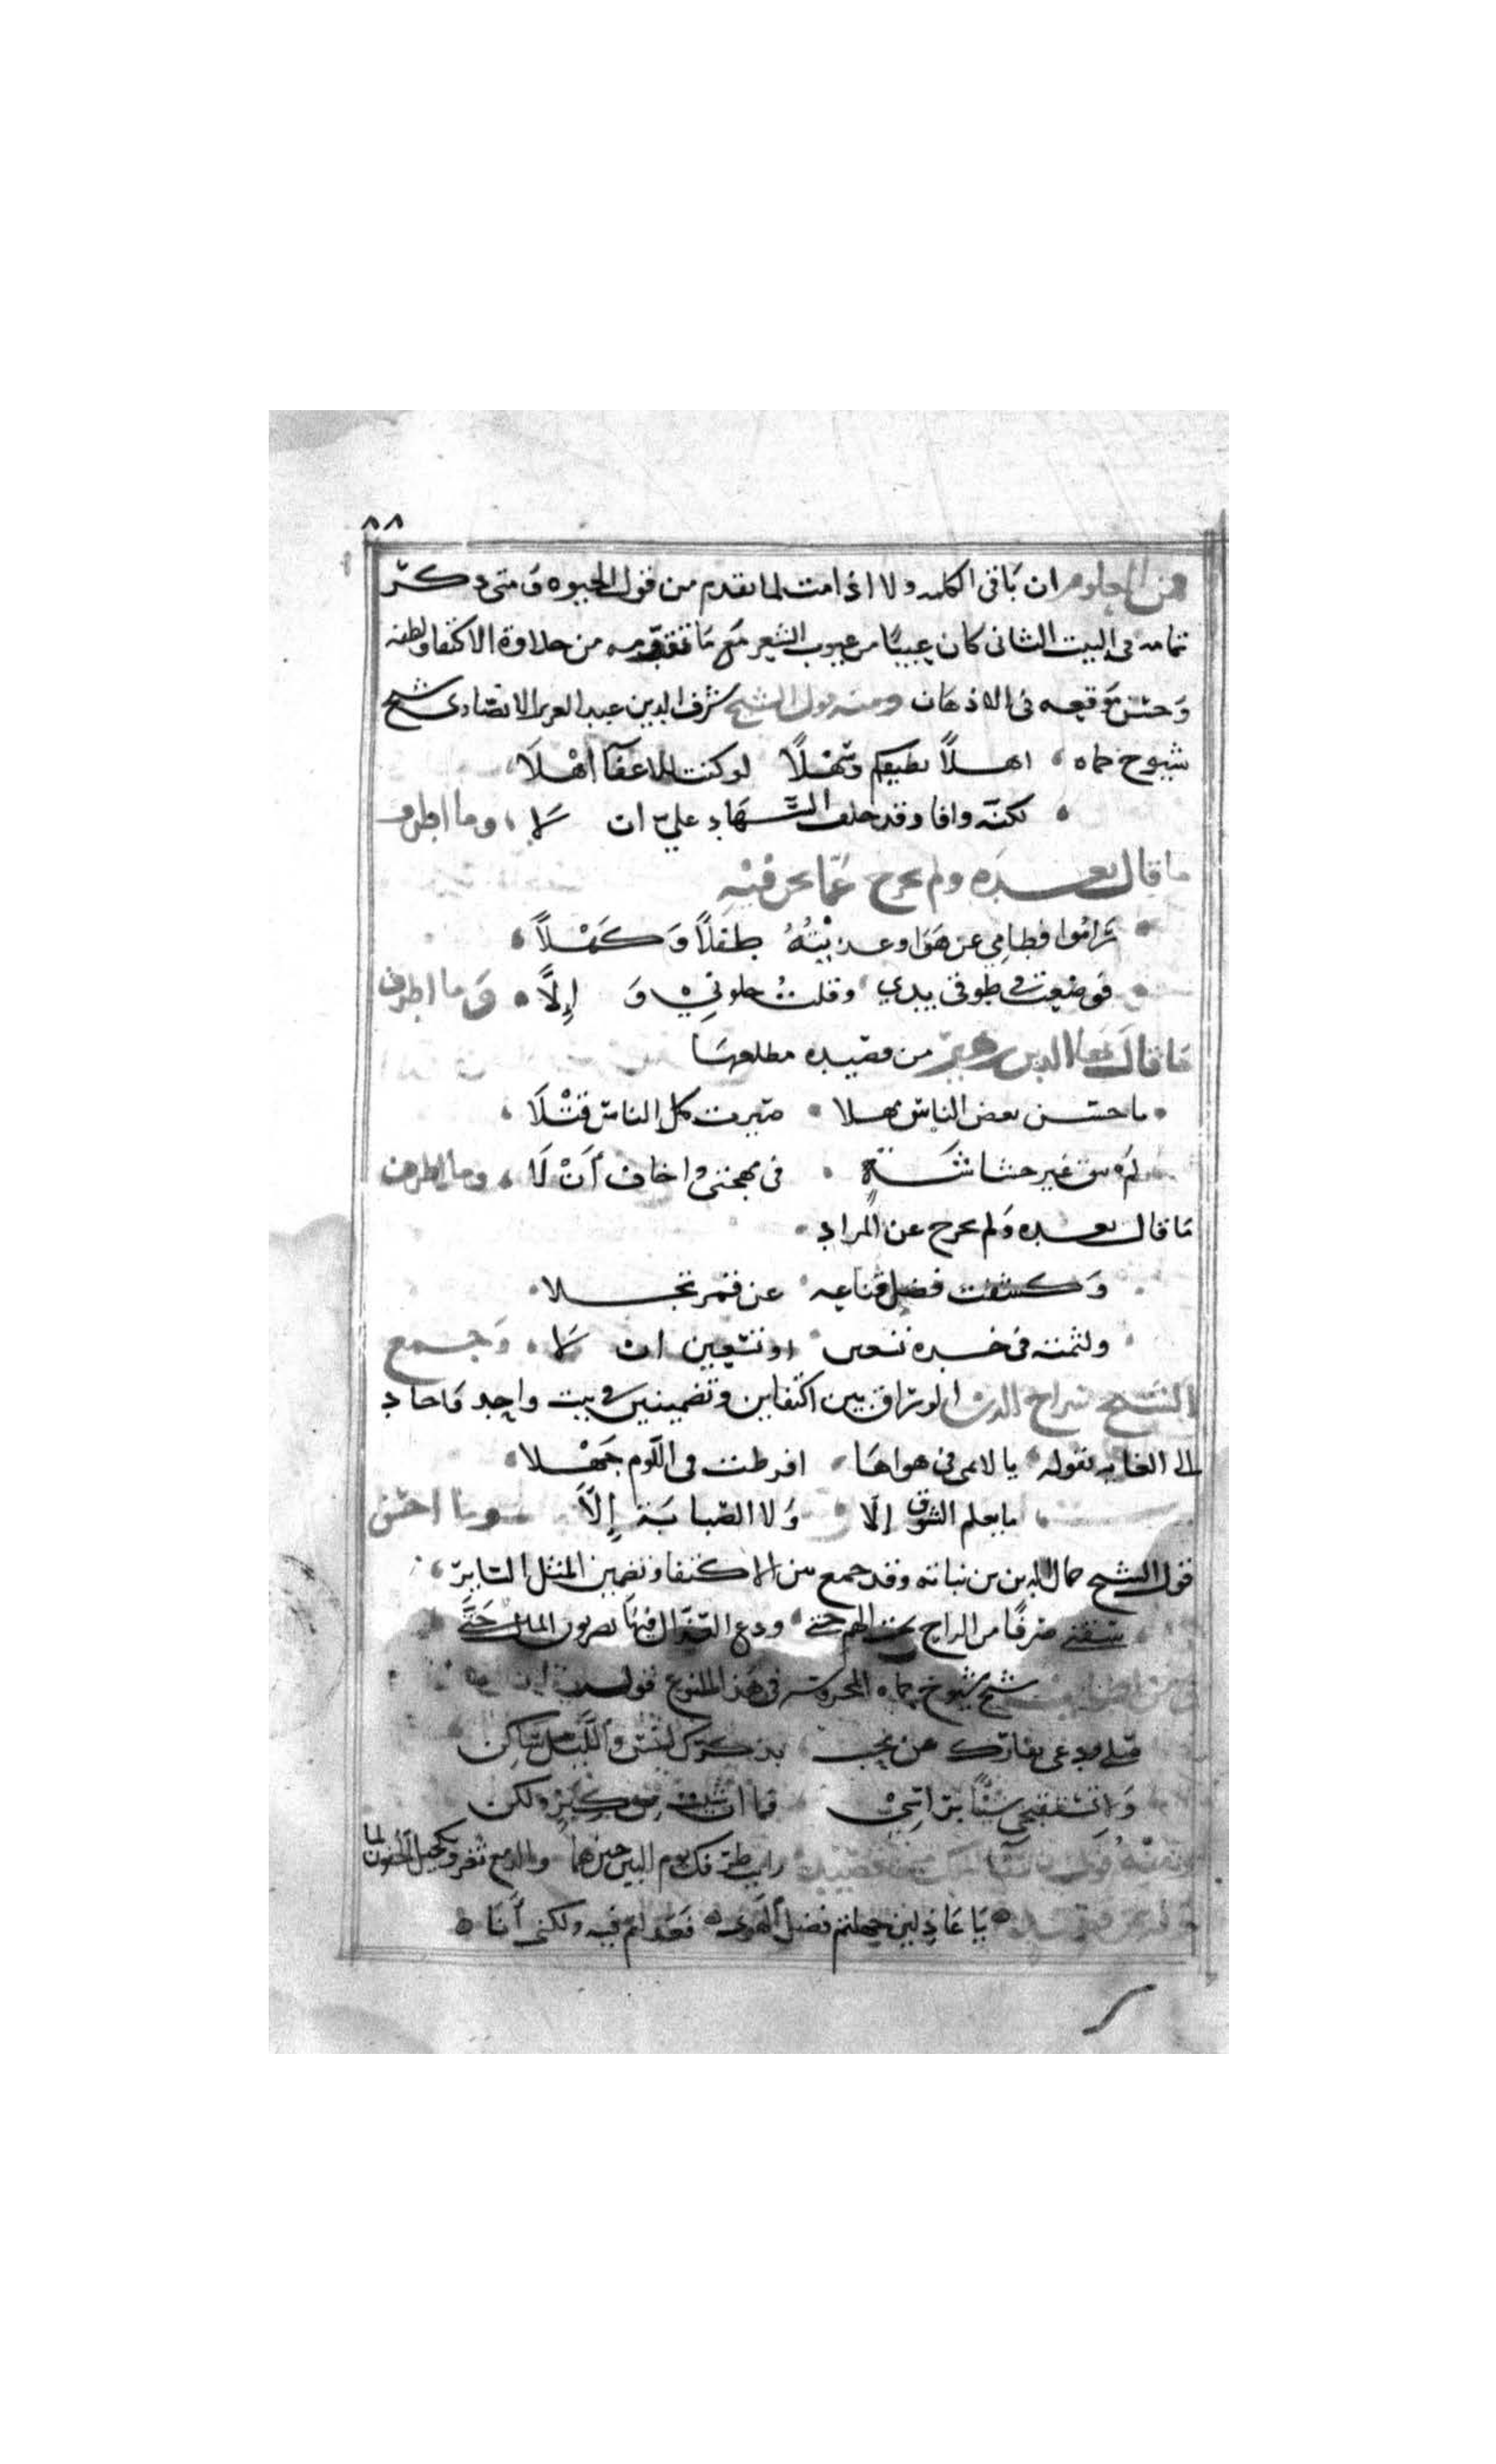 ٨٨
فمن المعلوم ان باقى الكلمه ولا اذا مت لما تقدم من قول الحيوه ومتى ذكر
تمامه فى البيت الثانى كان عيبًا من عيوب الشعر مع ما تقدمه من حلاوة الاكتفا ولطفه
وحسن موقعه فى الاذهان ومنه قول الشيخ شرف الدين عبد العزيز الانصارى شيخ
شيوخ حماه اهلاً بطيفكم وسهلاً لو كنت للاغفآ اهْلَا
لكنّه وافا وقد حلف السُّهاد علىّ ان لا، وما اظرف
ما قال بعده ولم يخرج عمّا نحن فيه
راموا فطامي عن هوًا وغذيتُهُ طفلاً وَكَهْلاً
فوضعت فى طوقى يدي وقلت خلونى وَ إِلَّا وما اظرف
ما قال بها الدين زهير من قصيده مطلعها
ما حسن بعض الناس مهلا صيرت كل الناس قَتْلَا
لم تبق غير حشاشةٍ فى مهجتى واخاف أنْ لَا، وما الطف
ما قال بعده ولم يخرج عن المراد
وكشفت فضل قناعه عن قمر تجلا
ولثمته فى خده تسعين او تسعين ان لا، وجمع
الشيخ سراج الدين الوراق بين اكتفاين وتضمينين فى بيت واحد فاجاد
الى الغايه بقوله يا لايمى فى هواها افرطت فى اللّوم جَهْلا
ما يعلم الشوق إلّا وَلا الصبابة إِلّا وما احسن
قول الشيخ جمال الدين بن نباته وقد جمع بين الاكتفا وتضمين المثل السّاير
سقنى صرفًا من الراح تحت الهم حتى ودع العذّال فيها يضربون الما حَتَّى
شيخ شيوخ حماه المحروسه فى هذا النوع قوله
قلى ودعى بذكرك ليس والليل ساكن
فما ان شبت من كِبَرٍ ولكن
رايت طرفك يوم البين حين هما والدمع ثغر وتكحيل الجفون لما
يا عاذلين جهلتم فضل الهوى فعذلتم فيه ولكنى أَنَا